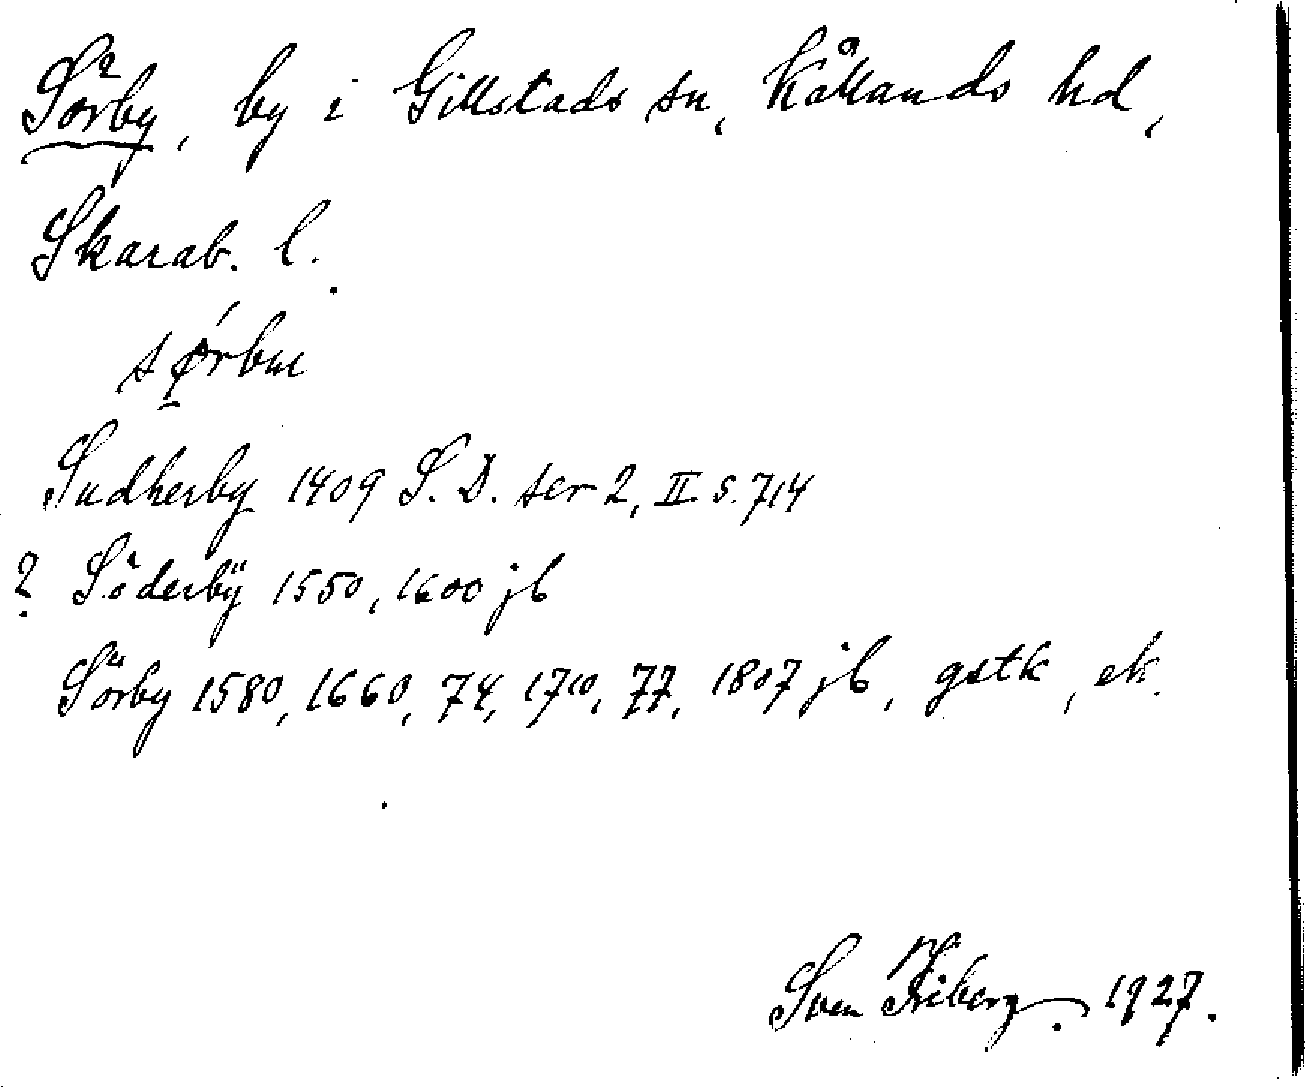 Sörby, by i Gillstads sn, Kållands hd,
Skarab. l.
Sudherby 1409 S. D. ser 2, II s. 714
? Söderbÿ 1550, 1600 jb
Sörby 1580, 1660, 74, 1710, 77, 1807 jb, gstk, ek.
Sven Friberg. 1927.